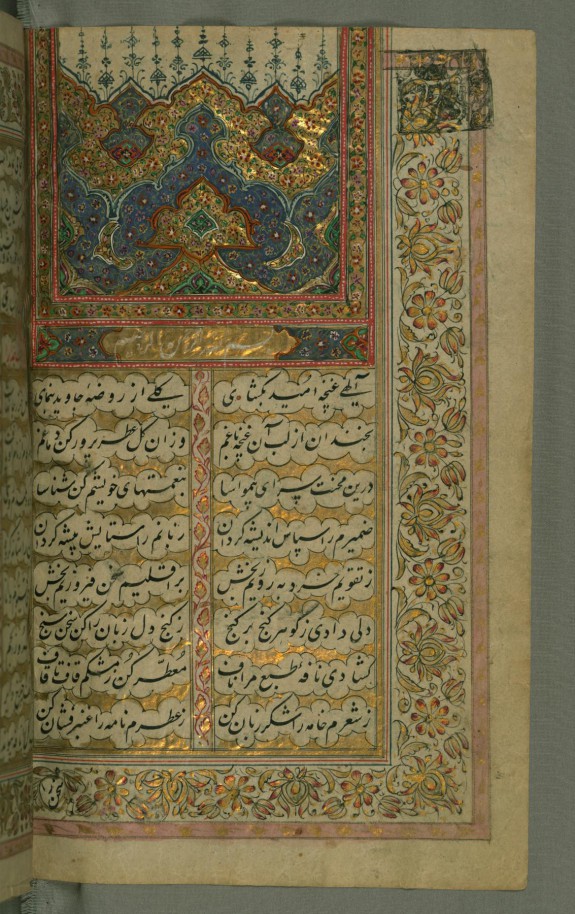 بسم الله الرحمن الرحیم
الهی غنچه امید بکشای کلی از روضه جاوید بنمای
بخندان از لب آن غنچه باغم وزان کل عطر پرور کن دماغم
درین محنت سرای بی مواسا بنعمتهای خویشم کن شناسا
ضمیرم را سپاس اندیشه کردان زبانم را ستایش پیشه کردان
ز تقویم خرد بهروزیم بخش بر اقلیم سخن فیروزیم بخش
دلی دادی ز کوهر کنج بر کنج ز کنج دل زبان را کن سخن سنج
کشادی نافه طبع مرا ناف معطر کن ز مشکم قاف تا قاف
ز شعرم خامه را شکر زبان کن ز عطرم نامه را عنبر فشان کن
سخن